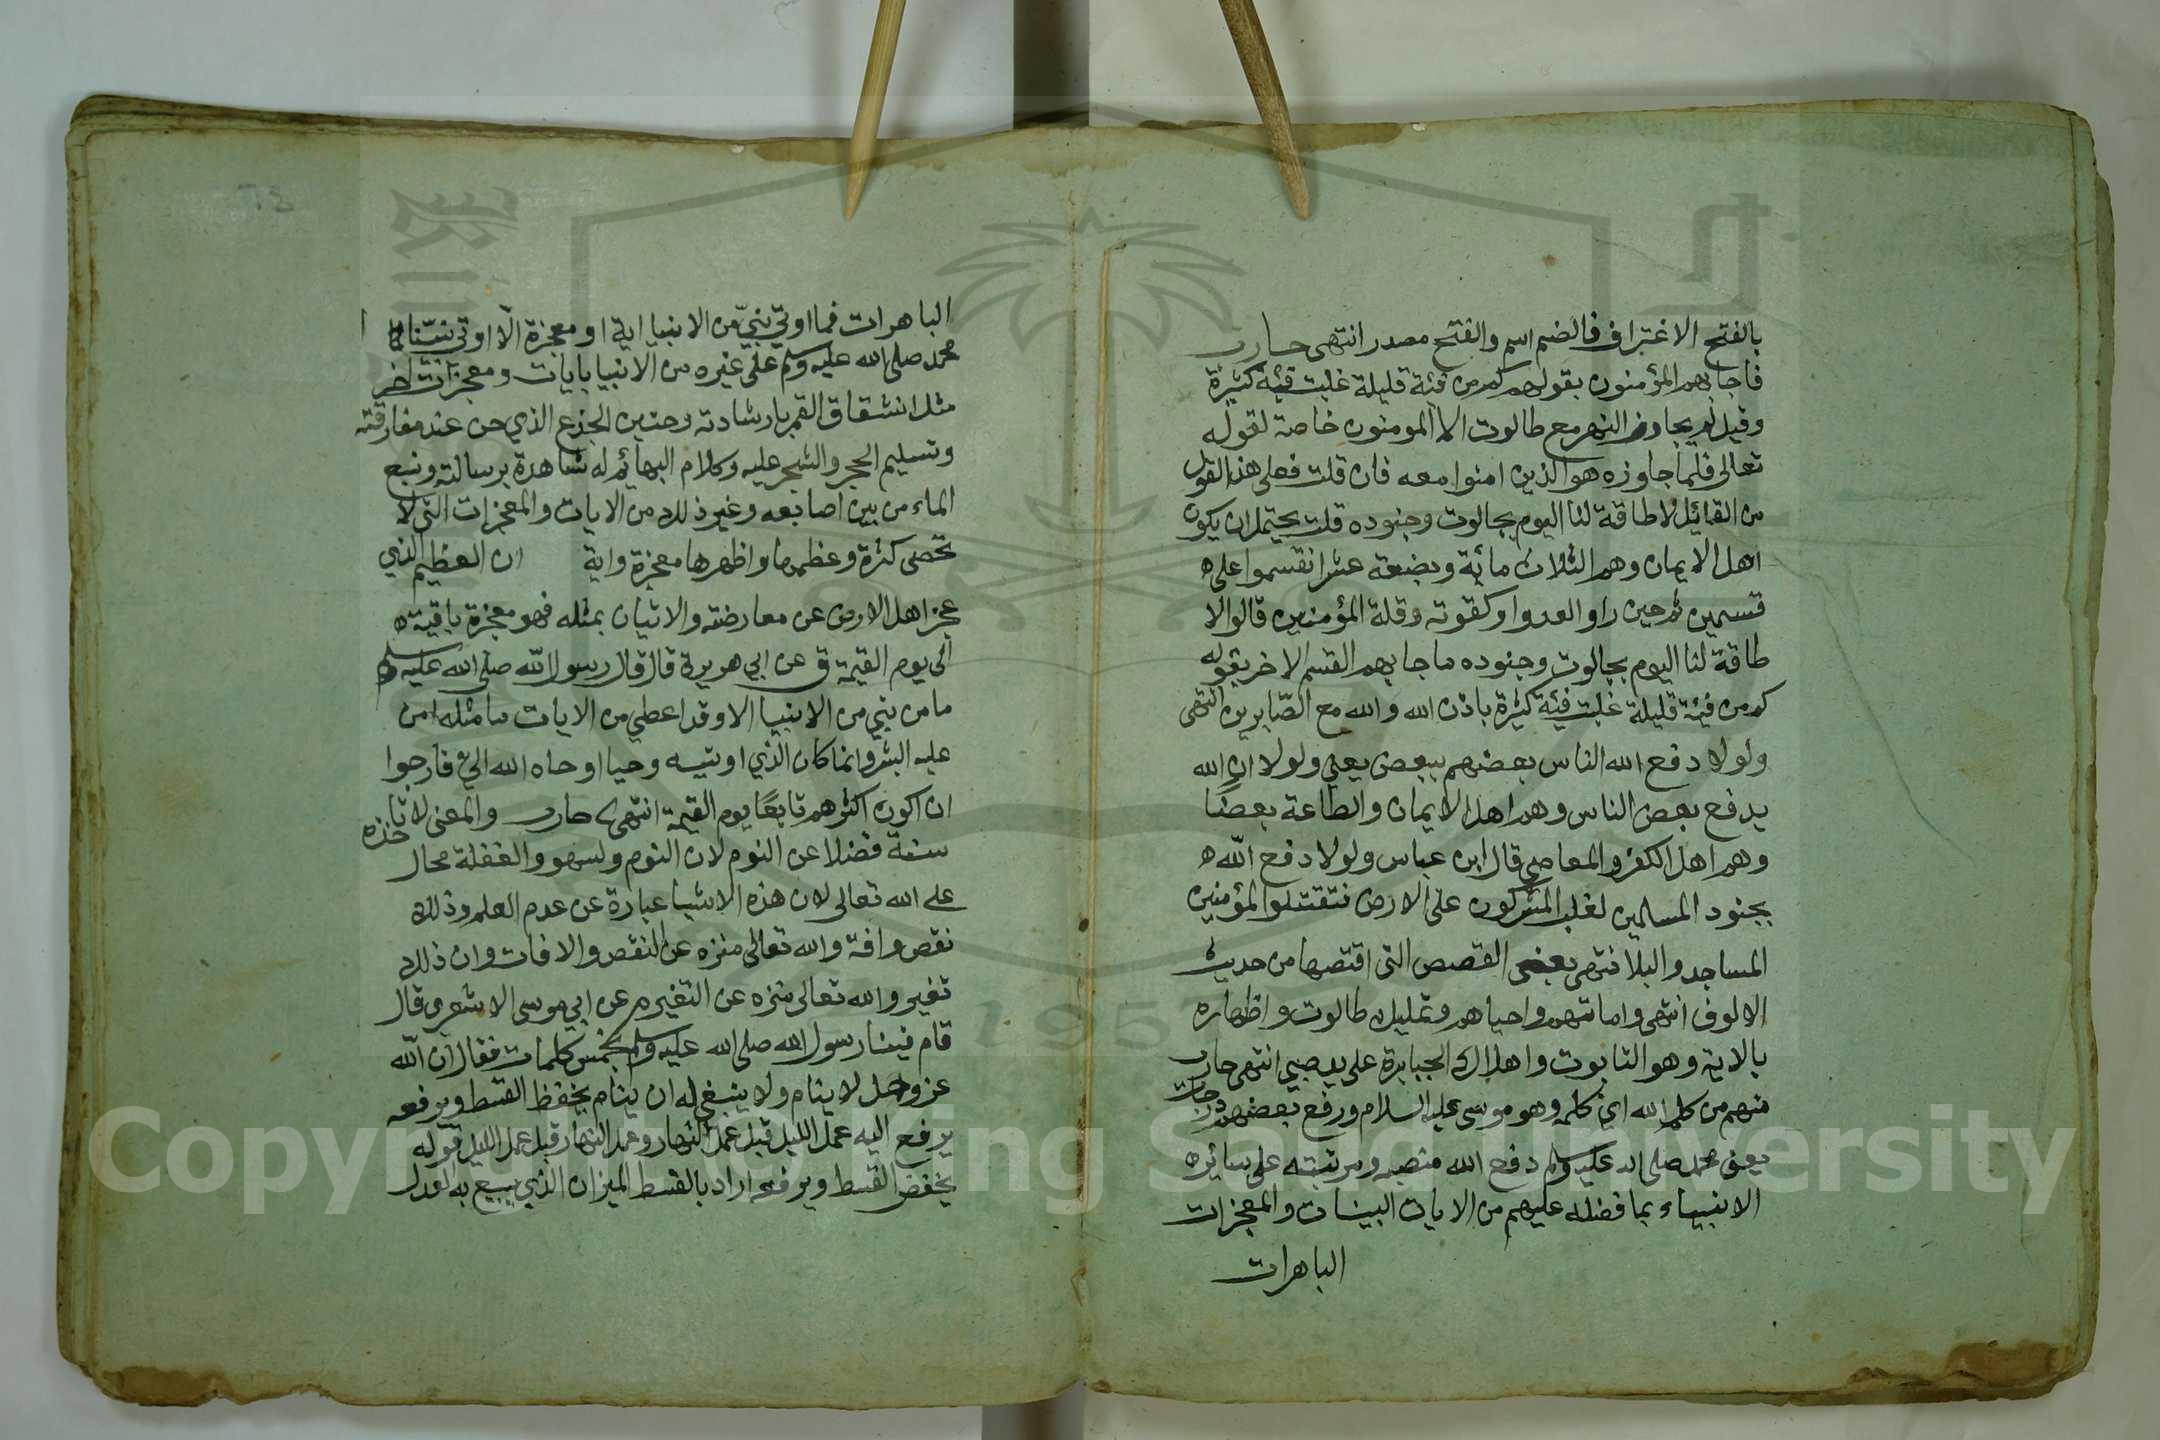 بالفتح الاغتراف فالضم اسم والفتح مصدر انتهى حارب
فاجابهم المؤمنون بقولهم كم من فئة قليلة غلبت فئة كثيرة
وقيل لم يجاوز النهر مع طالوت الا المومنون خاصة لقوله
تعالى فلما جاوزه هو الذين امنوا معه فان قلت فعلى هذا القول
من القائل لا طاقة لنا اليوم بجالوت وجنوده قلت يحتمل ان يكون
اهل الايمان وهم الثلاث مائة وبضعة عشر انقسموا على ه
قسمين ثم حين راو العدو او كقوته وقلة المؤمنين قالوا لا
طاقة لنا اليوم بجالوت وجنوده ما جابهم القسم الاخر بقوله
كم من فئة قليلة غلبت فئة كثيرة باذن الله والله مع الصابرين انتهى
ولولا دفع الله الناس بعضهم ببعض يعني ولولا ان الله
يدفع بعض الناس وهم اهل الايمان والطاعة بعضا
وهم اهل الكفر والمعاصي قال ابن عباس ولولا دفع الله ه
بجنود المسلمين لغلب المشركون على الارض فتقتلوا المؤمنين
المساجد والبلا نتهى بعض القصص التى اقتصها من حديث
الالوف انتهى واماتتهم واحياهم وتمليك طالوت واظهاره
بالاية وهو التابوت واهلاك الجبابرة على يد صبي انتهى حارب
منهم من كلم الله اي كلمه وهو موسى عليه السلام ورفع بعضهم درجات
يعنى محمد صلى الله عليه وسلم دفع الله منصبه ومرتبته على سائر ه
الانبياء بما فضله عليهم من الايات البينات والمعجزات
الباهرات
الباهرات فما اوتي نبي من الانبيا اية او معجزة الا اوتي نبينا
محمد صلى الله عليه وسلم على غيره من الانبيا بايات ومعجزات اخر
مثل انشقاق القمر بارشادته وحنين الجذع الذي حن عند مفارقته
وتسليم الحجر والشجر عليه وكلام البهائم له شاهدة برسالته ونبع
الماء من بين اصابعه وغير ذلك من الايات والمعجزات التى لا
تحصى كثرة وعظمها واظهرها معجزة واية ان العظيم الذي
عجز اهل الارض عن معارضته والاتيان بمثله فهو معجزة باقية ه
الى يوم القيمة ق عن ابي هريرة قال قال رسول الله صلى الله عليه وسلم
ما من نبي من الانبيا الا وقد اعطي من الايات ما مثله امن
عليه البشر وانما كان الذي اوتيته وحيا اوحاه الله الي فارجوا
ان اكون اكثرهم تابعا يوم القيمة انتهى حارب والمعنى لا تاخذه
سنة فضلا عن النوم لان النوم ولسهو والغفلة محال
على الله تعالى لان هذه الاشيا عبارة عن عدم العلم وذلك
نقص وافة والله تعالى منزه عن النقص والافات وان ذلك
تغير والله تعالى منزه عن التغير م عن ابي موسى الاشعري قال
قام فينا رسول الله صلى الله عليه وسلم بخمس كلمات فقال ان الله
عز وجل لا ينام ولا ينبغي له ان ينام يخفظ القسط ويرفعه
يرفع اليه عمل الليل قبل عمل النهار وعمل النهار قبل عمل الليل قوله
يخفض القسط ويرفعه اراد بالقسط الميزان الذي يبيع به العدل
Copyright © King Saud University
1957